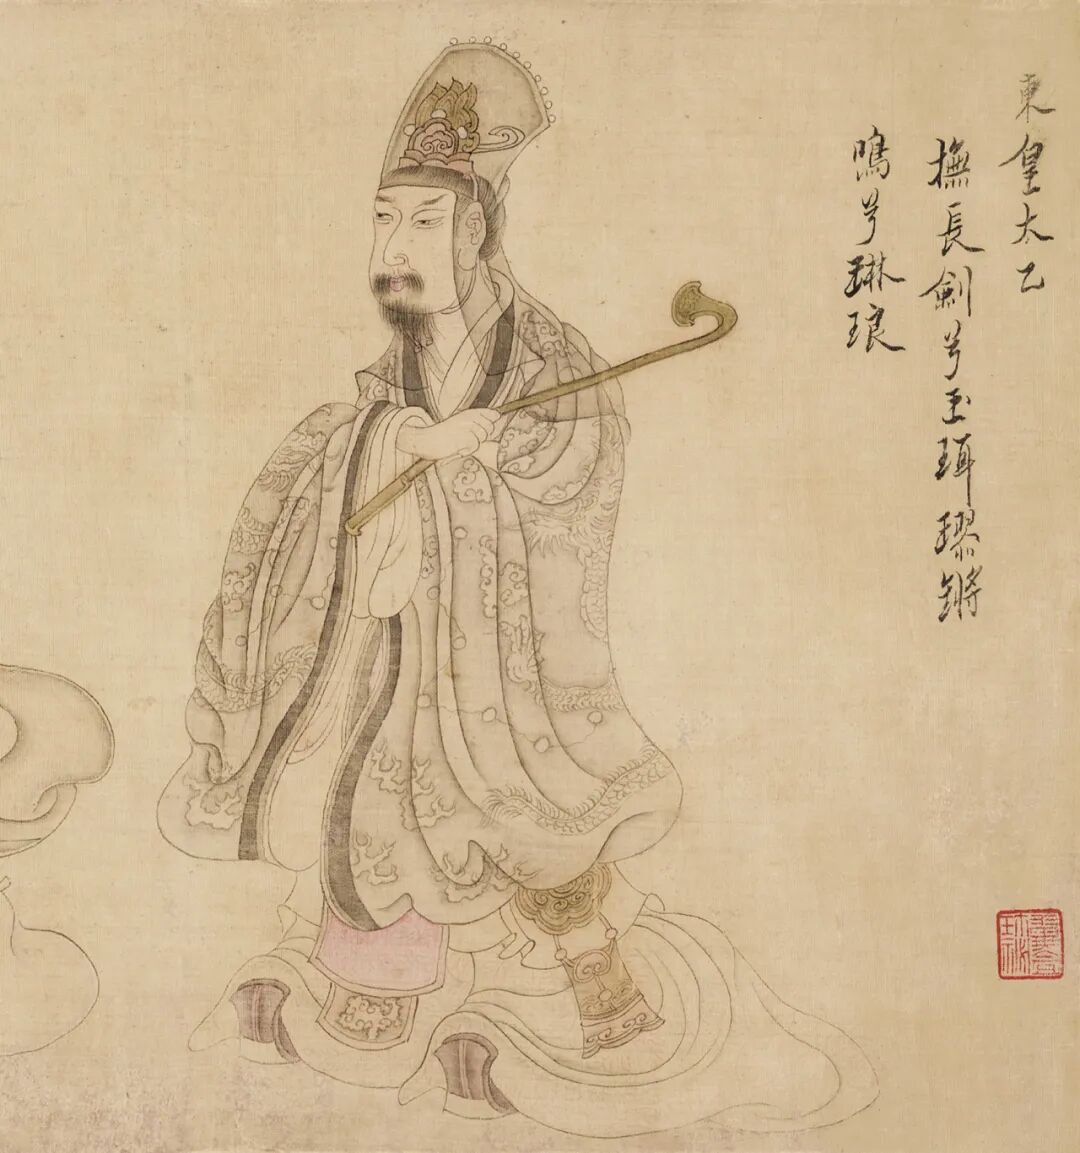 東皇太乙
撫長劍兮玉珥璆鏘
鳴兮琳琅